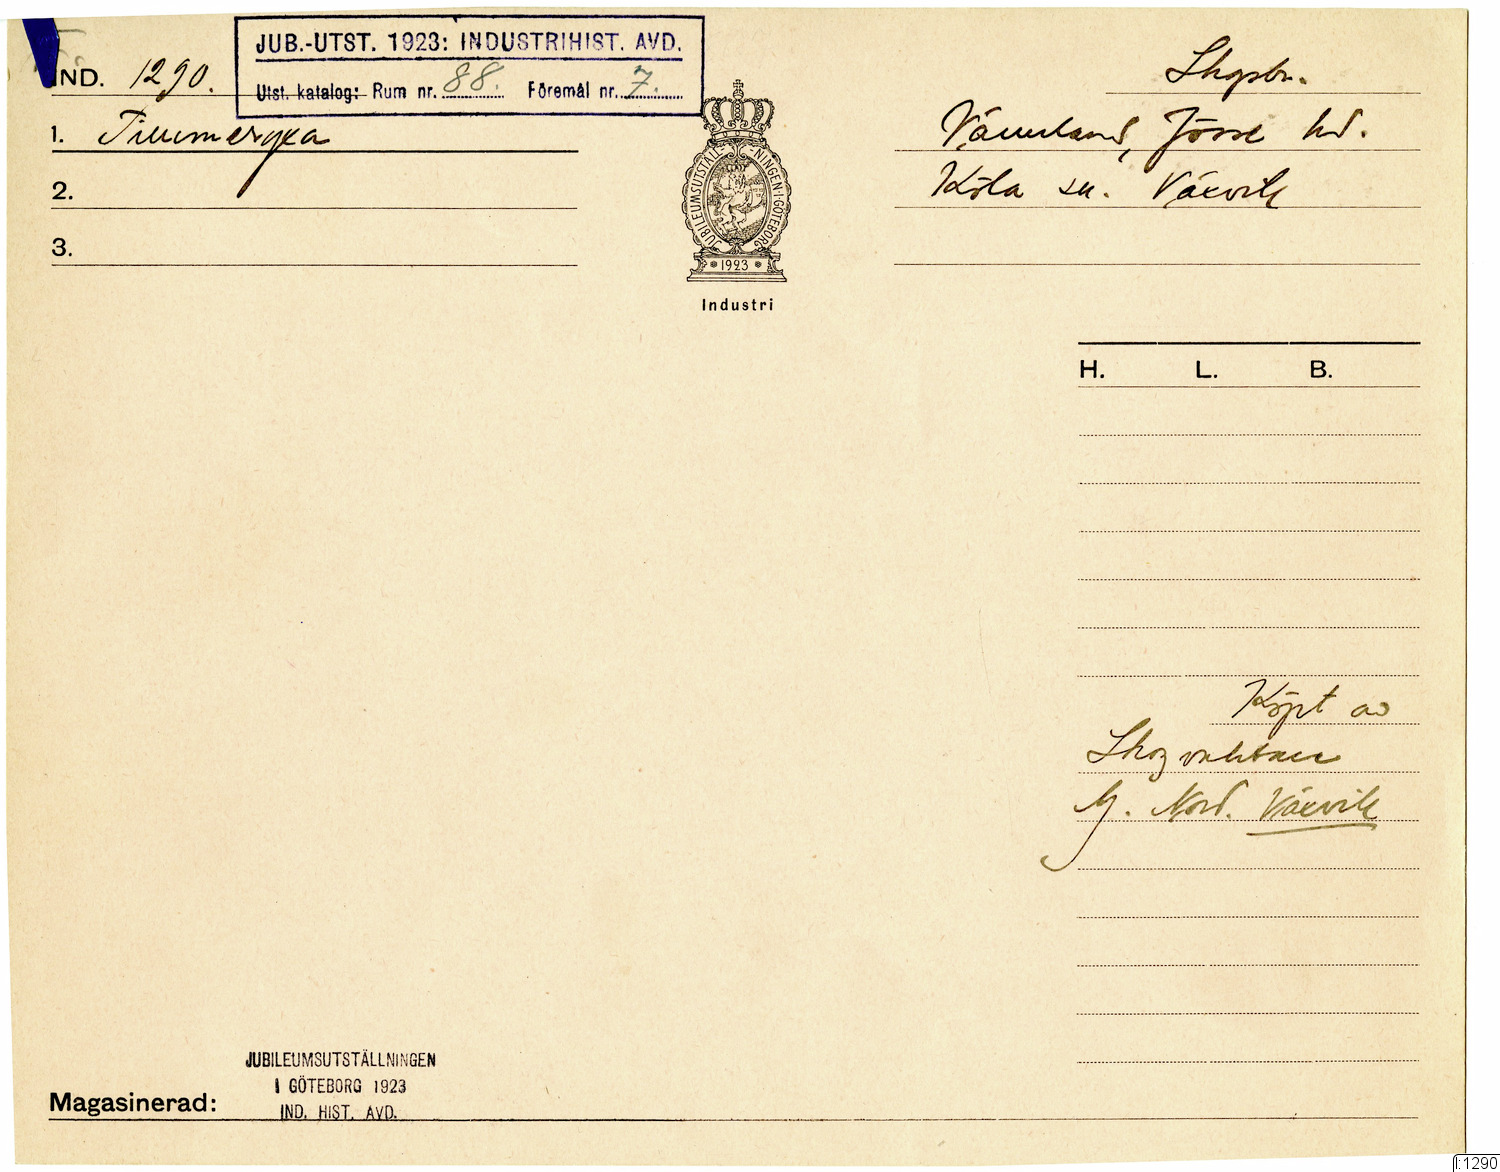 JUB.-UTST. 1923: INDUSTRIHIST. AVD.
Utst. katalog: Rum nr. 88. Föremål nr. 7.
IND. 1290.
1. Timmeryxa
2.
3.
JUBILEUMSUTSTÄLLNINGEN I GÖTEBORG
* 1923 *
Industri
Skogsbr.
Värmland, Jösse hd.
Köla sn. Växvik
H. L. B.
Köpt av
Skogvaktare
Nord. Växvik
JUBILEUMSUTSTÄLLNINGEN
I GÖTEBORG 1923
IND. HIST. AVD.
Magasinerad:
I:1290